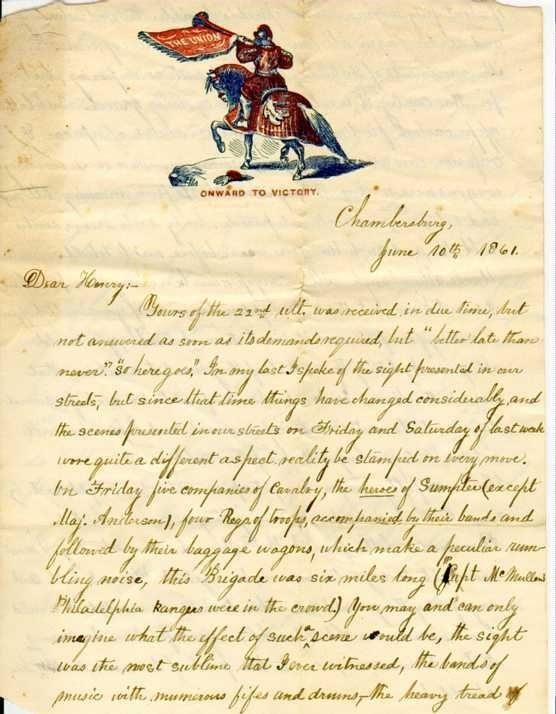 THE UNION
ONWARD TO VICTORY.
Chambersburg,
June 10th 1861.
Dear Henry:-
Yours of the 22nd ult. was received in due time, but
not answered as soon as its demands required, but "better late than
never". "so here goes," In my last I spoke of the sight presented in our
streets, but since that time things have changed considerably, and
the scenes presented in our streets on Friday and Saturday of last week
wore quite a different aspect, reality be stamped on every move.
On Friday five companies of Cavalry, the heroes of Sumpter (except
Maj. Anderson), four Regs of troops, accompanied by their bands and
followed by their baggage wagons, which make a peculiar rum-
bling noise, this Brigade was six miles long (Capt McMullens
Philadelphia Rangers were in the crowd) You may and can only
imagine what the effect of such a scene would be, the sight
was the most sublime that I ever witnessed, the bands of
music with numerous fifes and drums,- the heavy tread of